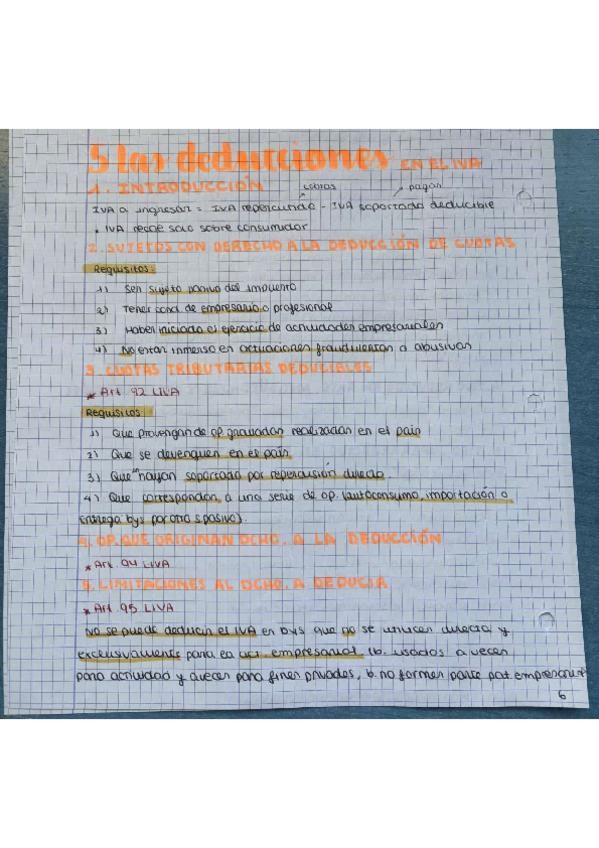 5 las deducciones EN EL IVA
1. INTRODUCCIÓN cobras pagan
IVA a ingresar = IVA repercutido - IVA soportado deducible
• IVA recae solo sobre consumidor
2. SUJETOS CON DERECHO A LA DEDUCCIÓN DE CUOTAS
Requisitos:
1) Ser sujeto pasivo del impuesto
2) Tener cond. de empresario o profesional
3) Haber iniciado el ejercicio de actividades empresariales
4) No estar inmerso en actuaciones fraudulentas o abusivas
3. CUOTAS TRIBUTARIAS DEDUCIBLES
* Art. 92 LIVA
Requisitos:
1) Que provengan de op. gravadas realizadas en el país
2) Que se devenguen en el país
3) Que hayan soportado por repercusión directa
4) Que correspondan a una serie de op. (autoconsumo, importación o
entrega bys por otro s pasivo).
4. OP. QUE ORIGINAN DCHO. A LA DEDUCCIÓN
* Art. 94 LIVA
5. LIMITACIONES AL DCHO. A DEDUCIR
* Art. 95 LIVA
No se puede deducir el IVA en bys que no se utilicen directa y
exclusivamente para la act. empresarial (b. usados a veces
para actividad y a veces para fines privados, b. no formen parte pat. empresarial
6